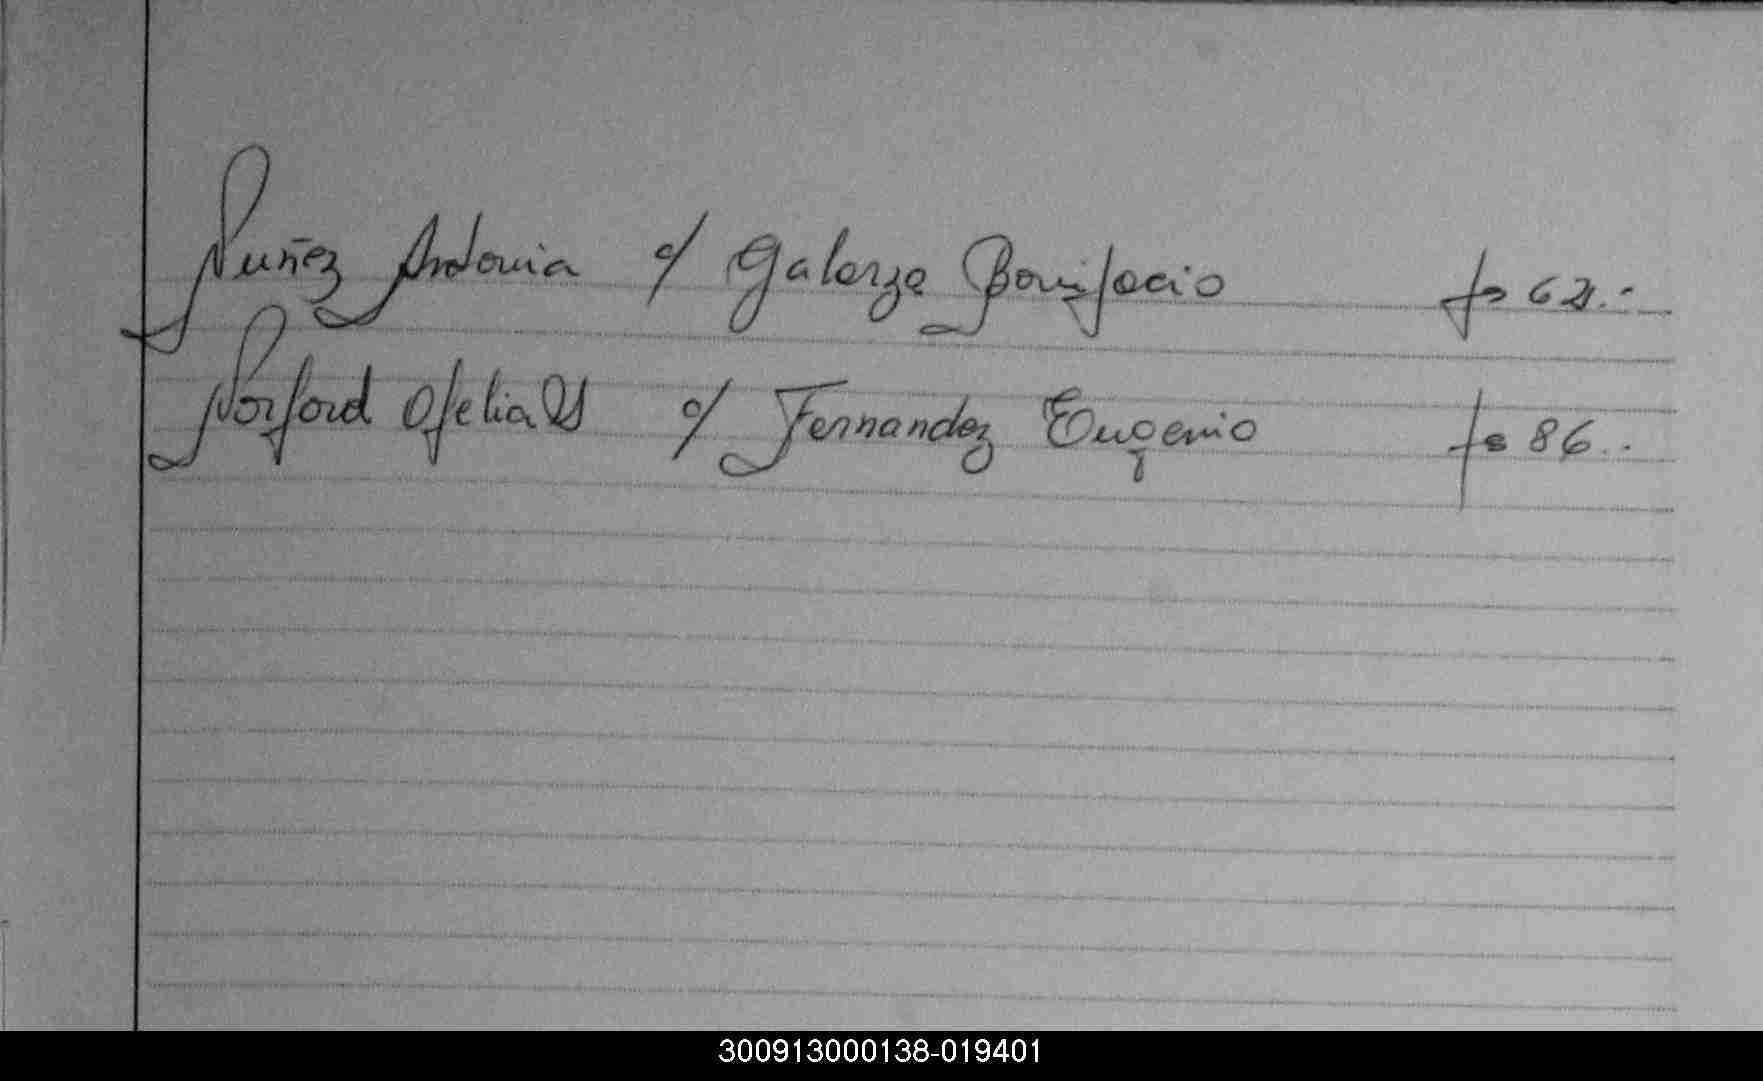 Nuñez Antonia c/ Galarza Bonifacio fs 62.-
Norford Ofelia c/ Fernandez Eugenio fs 86..
300913000138-019401